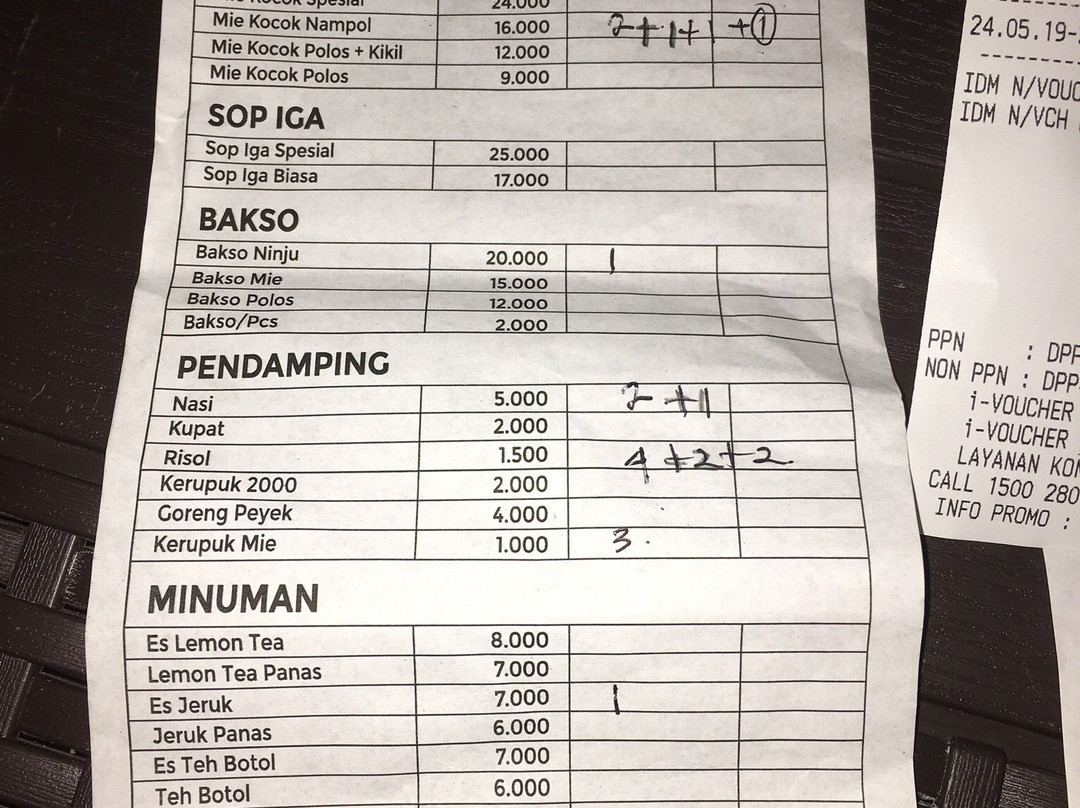 Mie Kocok Spesial 24.000
Mie Kocok Nampol 16.000 2+1+1+①
Mie Kocok Polos + Kikil 12.000
Mie Kocok Polos 9.000
SOP IGA
Sop Iga Spesial 25.000
Sop Iga Biasa 17.000
BAKSO
Bakso Ninju 20.000 1
Bakso Mie 15.000
Bakso Polos 12.000
Bakso/Pcs 2.000
PENDAMPING
Nasi 5.000 2 +11
Kupat 2.000
Risol 1.500 4+2+2
Kerupuk 2000 2.000
Goreng Peyek 4.000
Kerupuk Mie 1.000 3.
MINUMAN
Es Lemon Tea 8.000
Lemon Tea Panas 7.000
Es Jeruk 7.000 1
Jeruk Panas 6.000
Es Teh Botol 7.000
Teh Botol 6.000
24.05.19-
IDM N/VOUC
IDM N/VCH
PPN : DPP
NON PPN : DPP
i-VOUCHER
i-VOUCHER
LAYANAN KON
CALL 1500 280
INFO PROMO :